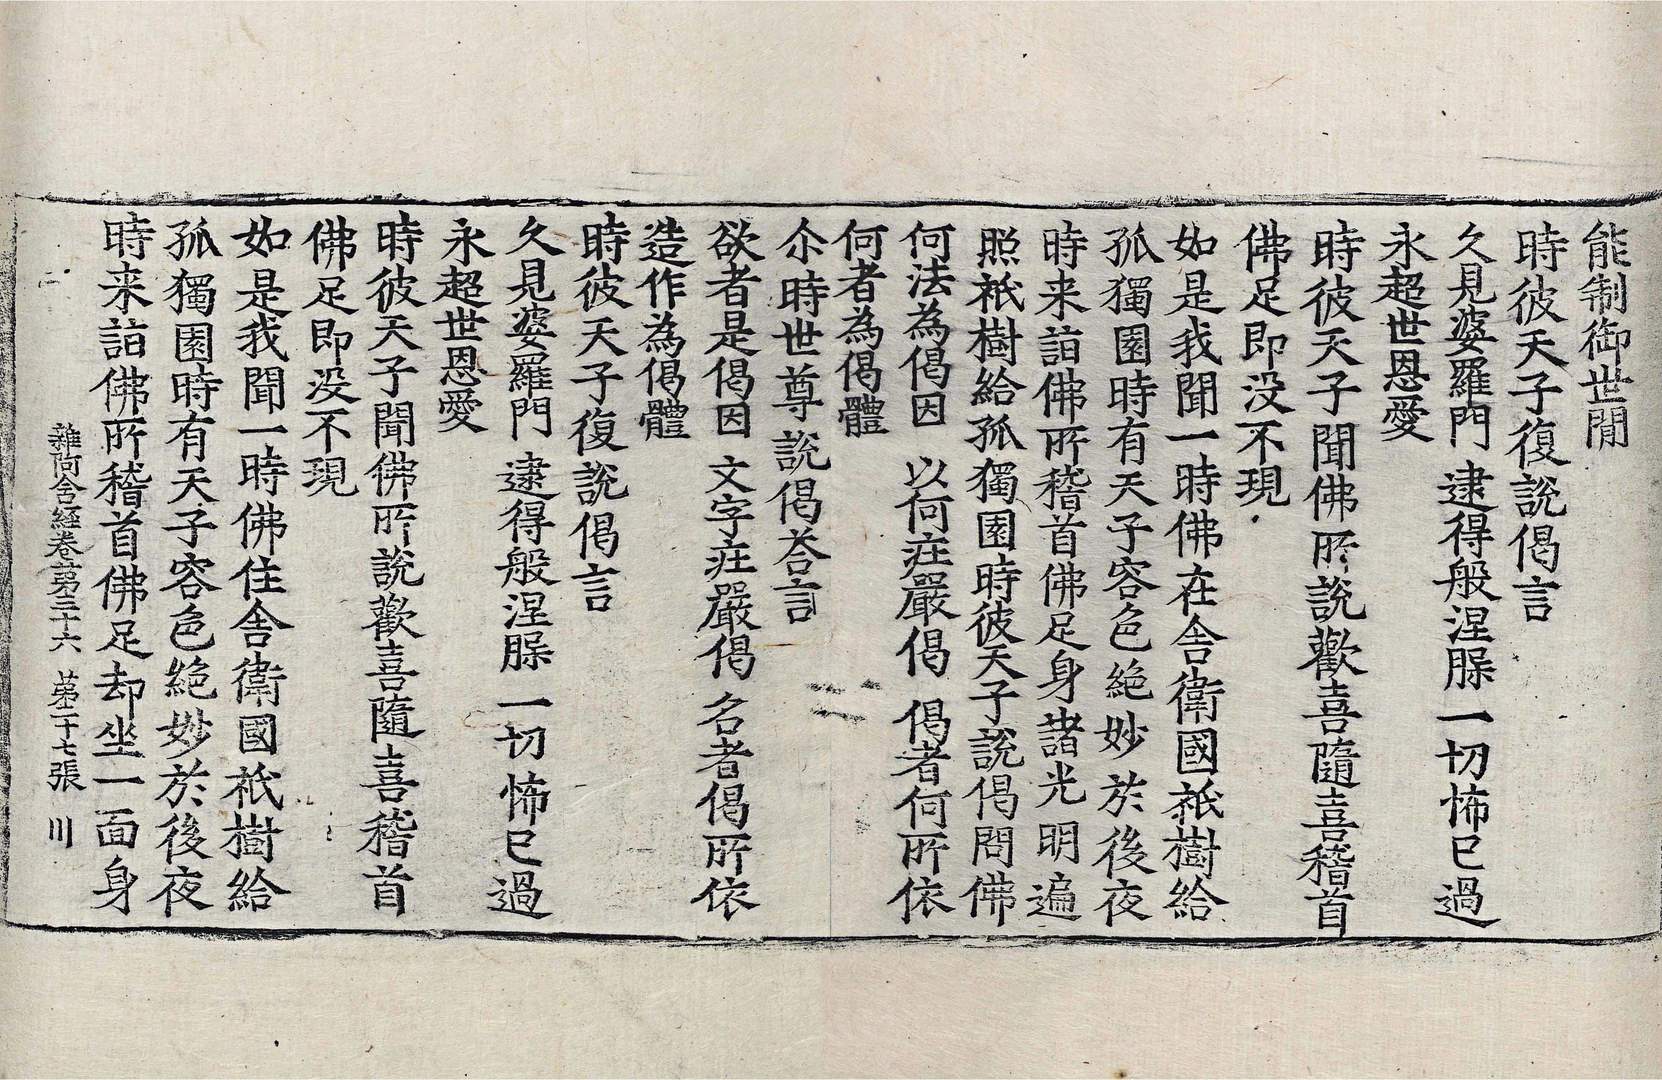 能制御世間
時彼天子復說偈言
久見婆羅門　逮得般涅槃　一切怖已過
永超世恩愛
時彼天子聞佛所說歡喜隨喜稽首
佛足即没不現
如是我聞一時佛在舍衛國祇樹給
孤獨園時有天子容色絶妙於後夜
時来詣佛所稽首佛足身諸光明遍
照祇樹給孤獨園時彼天子說偈問佛
何法為偈因　以何莊嚴偈　偈者何所依
何者為偈體
尒時世尊說偈荅言
欲者是偈因　文字莊嚴偈　名者偈所依
造作為偈體
時彼天子復說偈言
久見婆羅門　逮得般涅槃　一切怖已過
永超世恩愛
時彼天子聞佛所說歡喜隨喜稽首
佛足即没不現
如是我聞一時佛住舍衛國祇樹給
孤獨園時有天子容色絶妙於後夜
時来詣佛所稽首佛足却坐一面身
雜阿含経卷苐三十六　苐二十七張　川